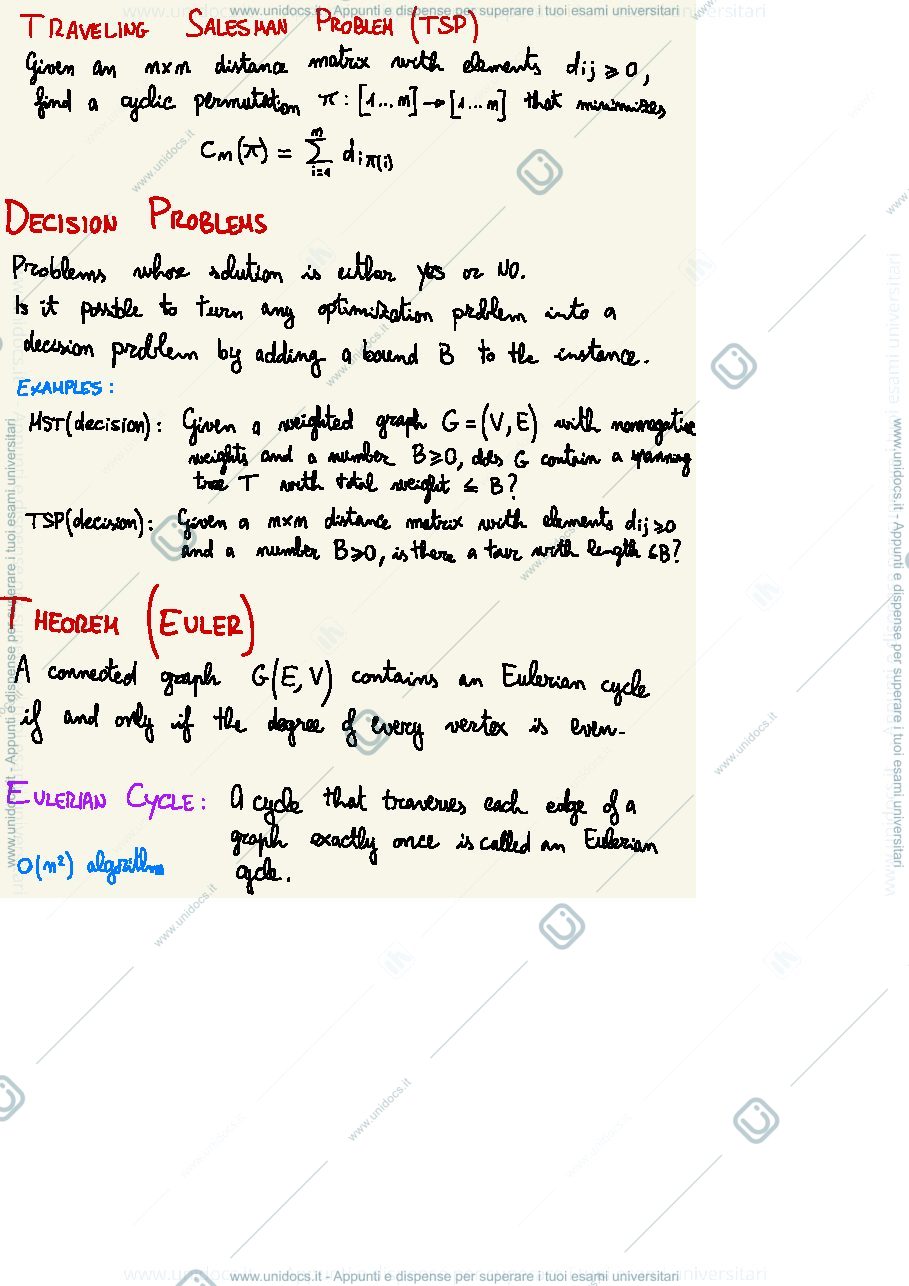 www.unidocs.it - Appunti e dispense per superare i tuoi esami universitari
TRAVELING SALESMAN PROBLEM (TSP)
Given an n×n distance matrix with elements dij ≥ 0,
find a cyclic permutation π: [1...n] → [1...n] that minimizes
Cn(π) = Σ i=1 n d i π(i)
DECISION PROBLEMS
Problems whose solution is either yes or NO.
Is it possible to turn any optimization problem into a
decision problem by adding a bound B to the instance.
EXAMPLES:
MST(decision): Given a weighted graph G=(V,E) with nonnegative
weights and a number B≥0, does G contain a spanning
tree T with total weight ≤ B?
TSP(decision): Given a n×n distance matrix with elements dij ≥0
and a number B≥0, is there a tour with length ≤B?
THEOREM (EULER)
A connected graph G(E,V) contains an Eulerian cycle
if and only if the degree of every vertex is even.
EULERIAN CYCLE: A cycle that traverses each edge of a
graph exactly once is called an Eulerian
O(n²) algorithm cycle.
www.unidocs.it - Appunti e dispense per superare i tuoi esami universitari